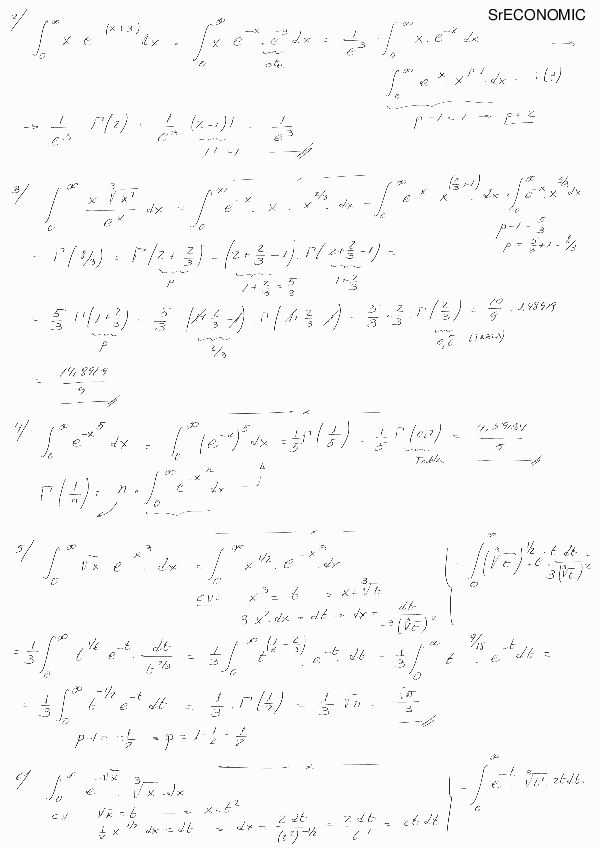 SrECONOMIC
2/ ∫₀^∞ x e^-(x+3) dx = ∫₀^∞ x e^-x · e^-3 dx = 1/e³ · ∫₀^∞ x · e^-x dx →
cte
∫₀^∞ e^-x · x^p-1 · dx = Γ(p)
p-1 = 1 → p = 2
→ 1/e³ · Γ(2) = 1/e³ · (2-1)! = 1/e³
1! = 1
3/ ∫₀^∞ x ∛x² / e^x dx = ∫₀^∞ e^-x · x · x^2/3 · dx = ∫₀^∞ e^-x x^(2/3+1) · dx = ∫₀^∞ e^-x · x^5/3 dx
p-1 = 5/3
p = 5/3 + 1 = 8/3
= Γ(8/3) = Γ(2 + 2/3) = (2 + 2/3 - 1) · Γ(2 + 2/3 - 1) =
p 1 + 2/3 = 5/3 1 + 2/3
= 5/3 Γ(1 + 2/3) = 5/3 · (1 + 2/3 - 1) · Γ(1 + 2/3 - 1) = 5/3 · 2/3 · Γ(2/3) = 10/9 · 1,48919
p 2/3
= 14,8919 / 9
4/ ∫₀^∞ e^-x⁵ · dx = ∫₀^∞ (e^-x)⁵ dx = 1/5 Γ(1/5) = 1/5 Γ(0,2) = 4,59084 / 5
Tablas
Γ(1/n) = n · ∫₀^∞ e^-xⁿ dx
5/ ∫₀^∞ √x e^-x³ · dx = ∫₀^∞ x^1/2 · e^-x³ dx
C.V. x³ = t → x = ∛t
3x² · dx = dt → dx = dt / 3(∛t)²
= ∫₀^∞ (∛t)^1/2 · e^-t dt / 3(∛t)² =
= 1/3 ∫₀^∞ t^1/6 e^-t · dt / t^2/3 = 1/3 ∫₀^∞ t^(1/6 - 2/3) · e^-t · dt = 1/3 ∫₀^∞ t^-9/18 · e^-t dt =
= 1/3 ∫₀^∞ t^-1/2 e^-t dt = 1/3 · Γ(1/2) = 1/3 √π = √π / 3
p-1 = -1/2 → p = 1 - 1/2 = 1/2
6/ ∫₀^∞ e^-√x · ∛x · dx
C.V. √x = t → x = t²
1/2 x^-1/2 dx = dt → dx = 2 dt / (t²)^-1/2 = 2 dt / t^-1 = 2t dt
= ∫₀^∞ e^-t · ∛t² · 2t dt